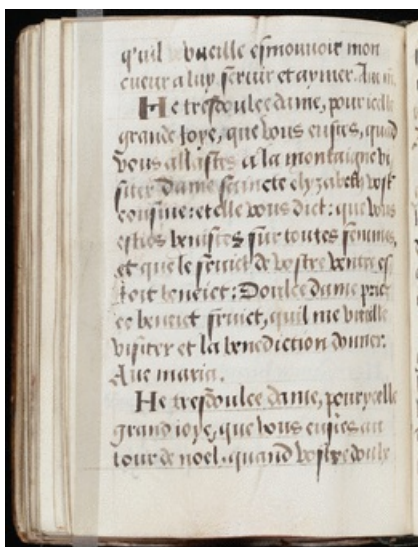 quil vueille esmouvoir mon
cueur a luy servir et aymer. Ave m.
He tresdoulce dame, pour icelle
grande ioye, que vous eustes, quād
vous allastes a la montaigne vi-
siter dame saincte elyzabeth vostre
cousine: et elle vous dict: que vous
esties beniste sur toutes femmes,
et que le fruict de vostre ventre es-
toit beneict: Doulce dame priez
ce beneict fruict, quil me vueille
visiter et la benediction donner.
Ave maria.
He tresdoulce dame, pour ycelle
grand ioye, que vous eustes au
iour de noel, quand vostre doulx